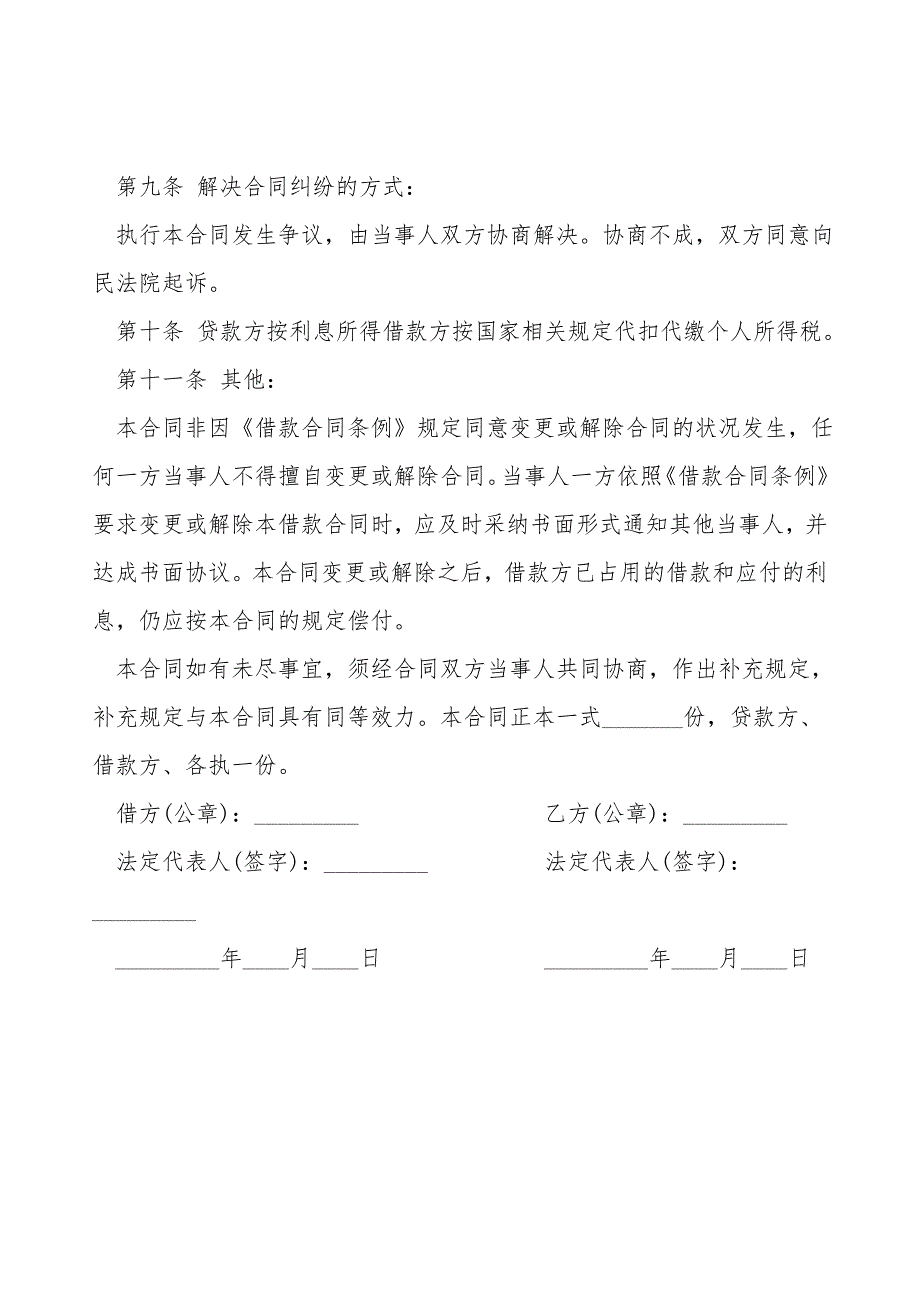 第九条 解决合同纠纷的方式：
执行本合同发生争议，由当事人双方协商解决。协商不成，双方同意向
民法院起诉。
第十条 贷款方按利息所得借款方按国家相关规定代扣代缴个人所得税。
第十一条 其他：
本合同非因《借款合同条例》规定同意变更或解除合同的状况发生，任
何一方当事人不得擅自变更或解除合同。当事人一方依照《借款合同条例》
要求变更或解除本借款合同时，应及时采纳书面形式通知其他当事人，并
达成书面协议。本合同变更或解除之后，借款方已占用的借款和应付的利
息，仍应按本合同的规定偿付。
本合同如有未尽事宜，须经合同双方当事人共同协商，作出补充规定，
补充规定与本合同具有同等效力。本合同正本一式_______份，贷款方、
借款方、各执一份。
借方(公章)：_________ 乙方(公章)：_________
法定代表人(签字)：_________ 法定代表人(签字)：
_________
_________年____月____日 _________年____月____日